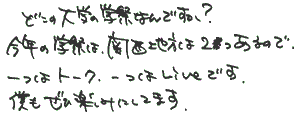 どこの大学の学祭なんですか?
今年の学祭は、関西と地方は2つあるので、
一つはトーク、一つはLiveです。
僕もぜひ楽しみにしてます。